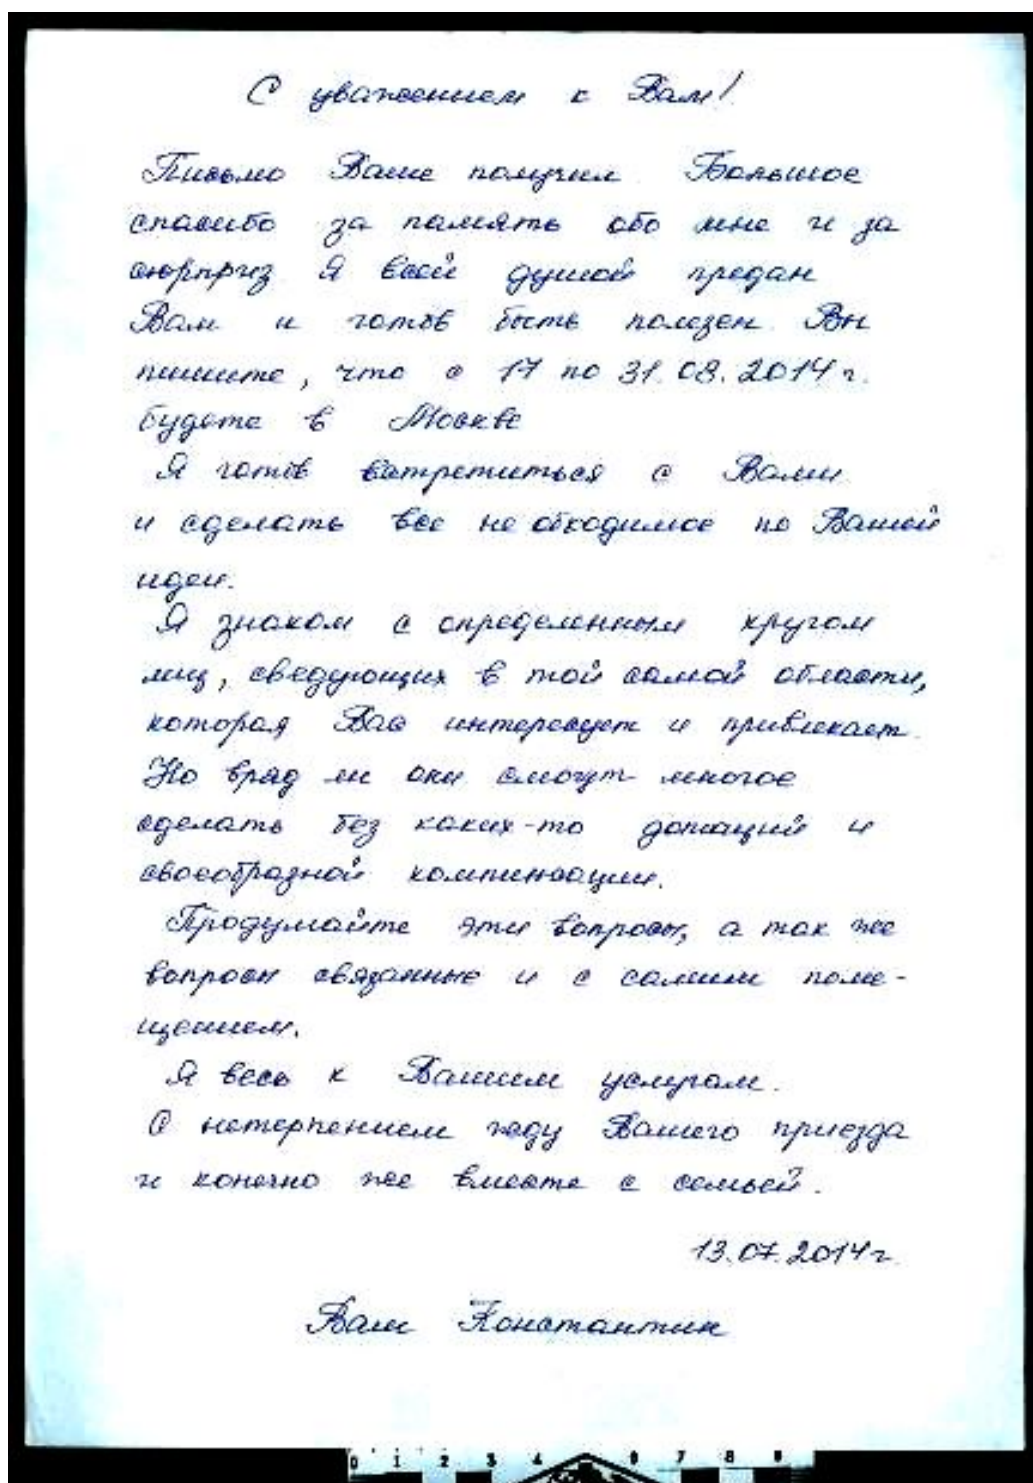 С уважением к Вам!
Письмо Ваше получил Большое
спасибо за память обо мне и за
сюрприз Я всей душой предан
Вам и готов быть полезен. Вы
пишите, что с 17 по 31.08.2014г.
будете в Москве
Я готов встретиться с Вами
и сделать все не обходимое по Вашей
идеи.
Я знаком с определенным кругом
лиц, сведующих в той самой области,
которая Вас интересует и привлекает.
Но вряд ли они смогут многое
сделать без каких-то дотаций и
своеобразной компинсации.
Продумайте эти вопросы, а так же
вопросы связанные и с самим поме-
щением.
Я весь к Вашим услугам.
С нетерпением жду Вашего приезда
и конечно же вместе с семьей.
13.07.2014г.
Ваш Константин
0 1 2 3 4 6 7 8 9